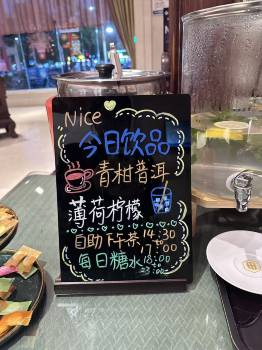 Nice
今日饮品
青柑普洱
薄荷柠檬
自助下午茶 14:30
to
17:00
每日糖水 18:00
to
23:00